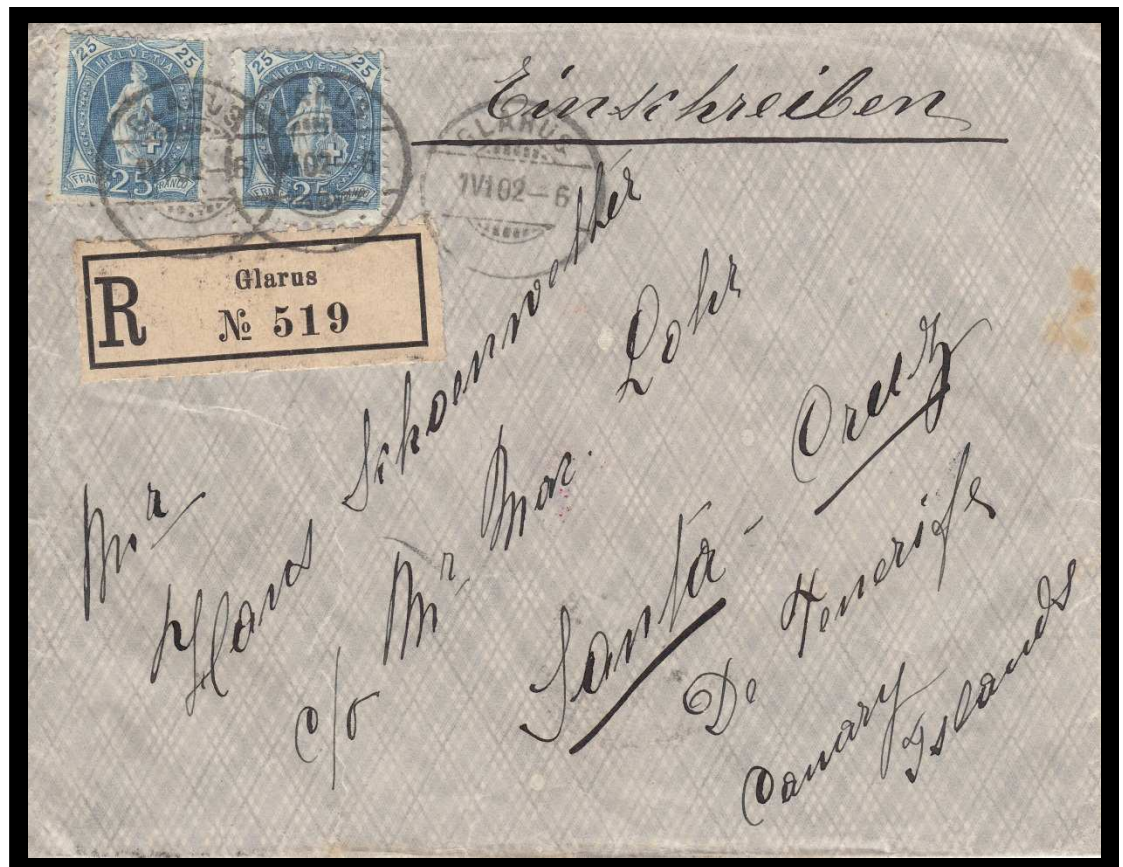 25 HELVETIA 25
FRANCO 25 FRANCO
25 HELVETIA 25
25
Einschreiben
GLARUS
1 VI 02 – 6
R
Glarus
№ 519
Mr
Hans Schoenwether
c/o Mr Max. Lohr
Santa- Cruz
De Tenerife
Canary
Islands